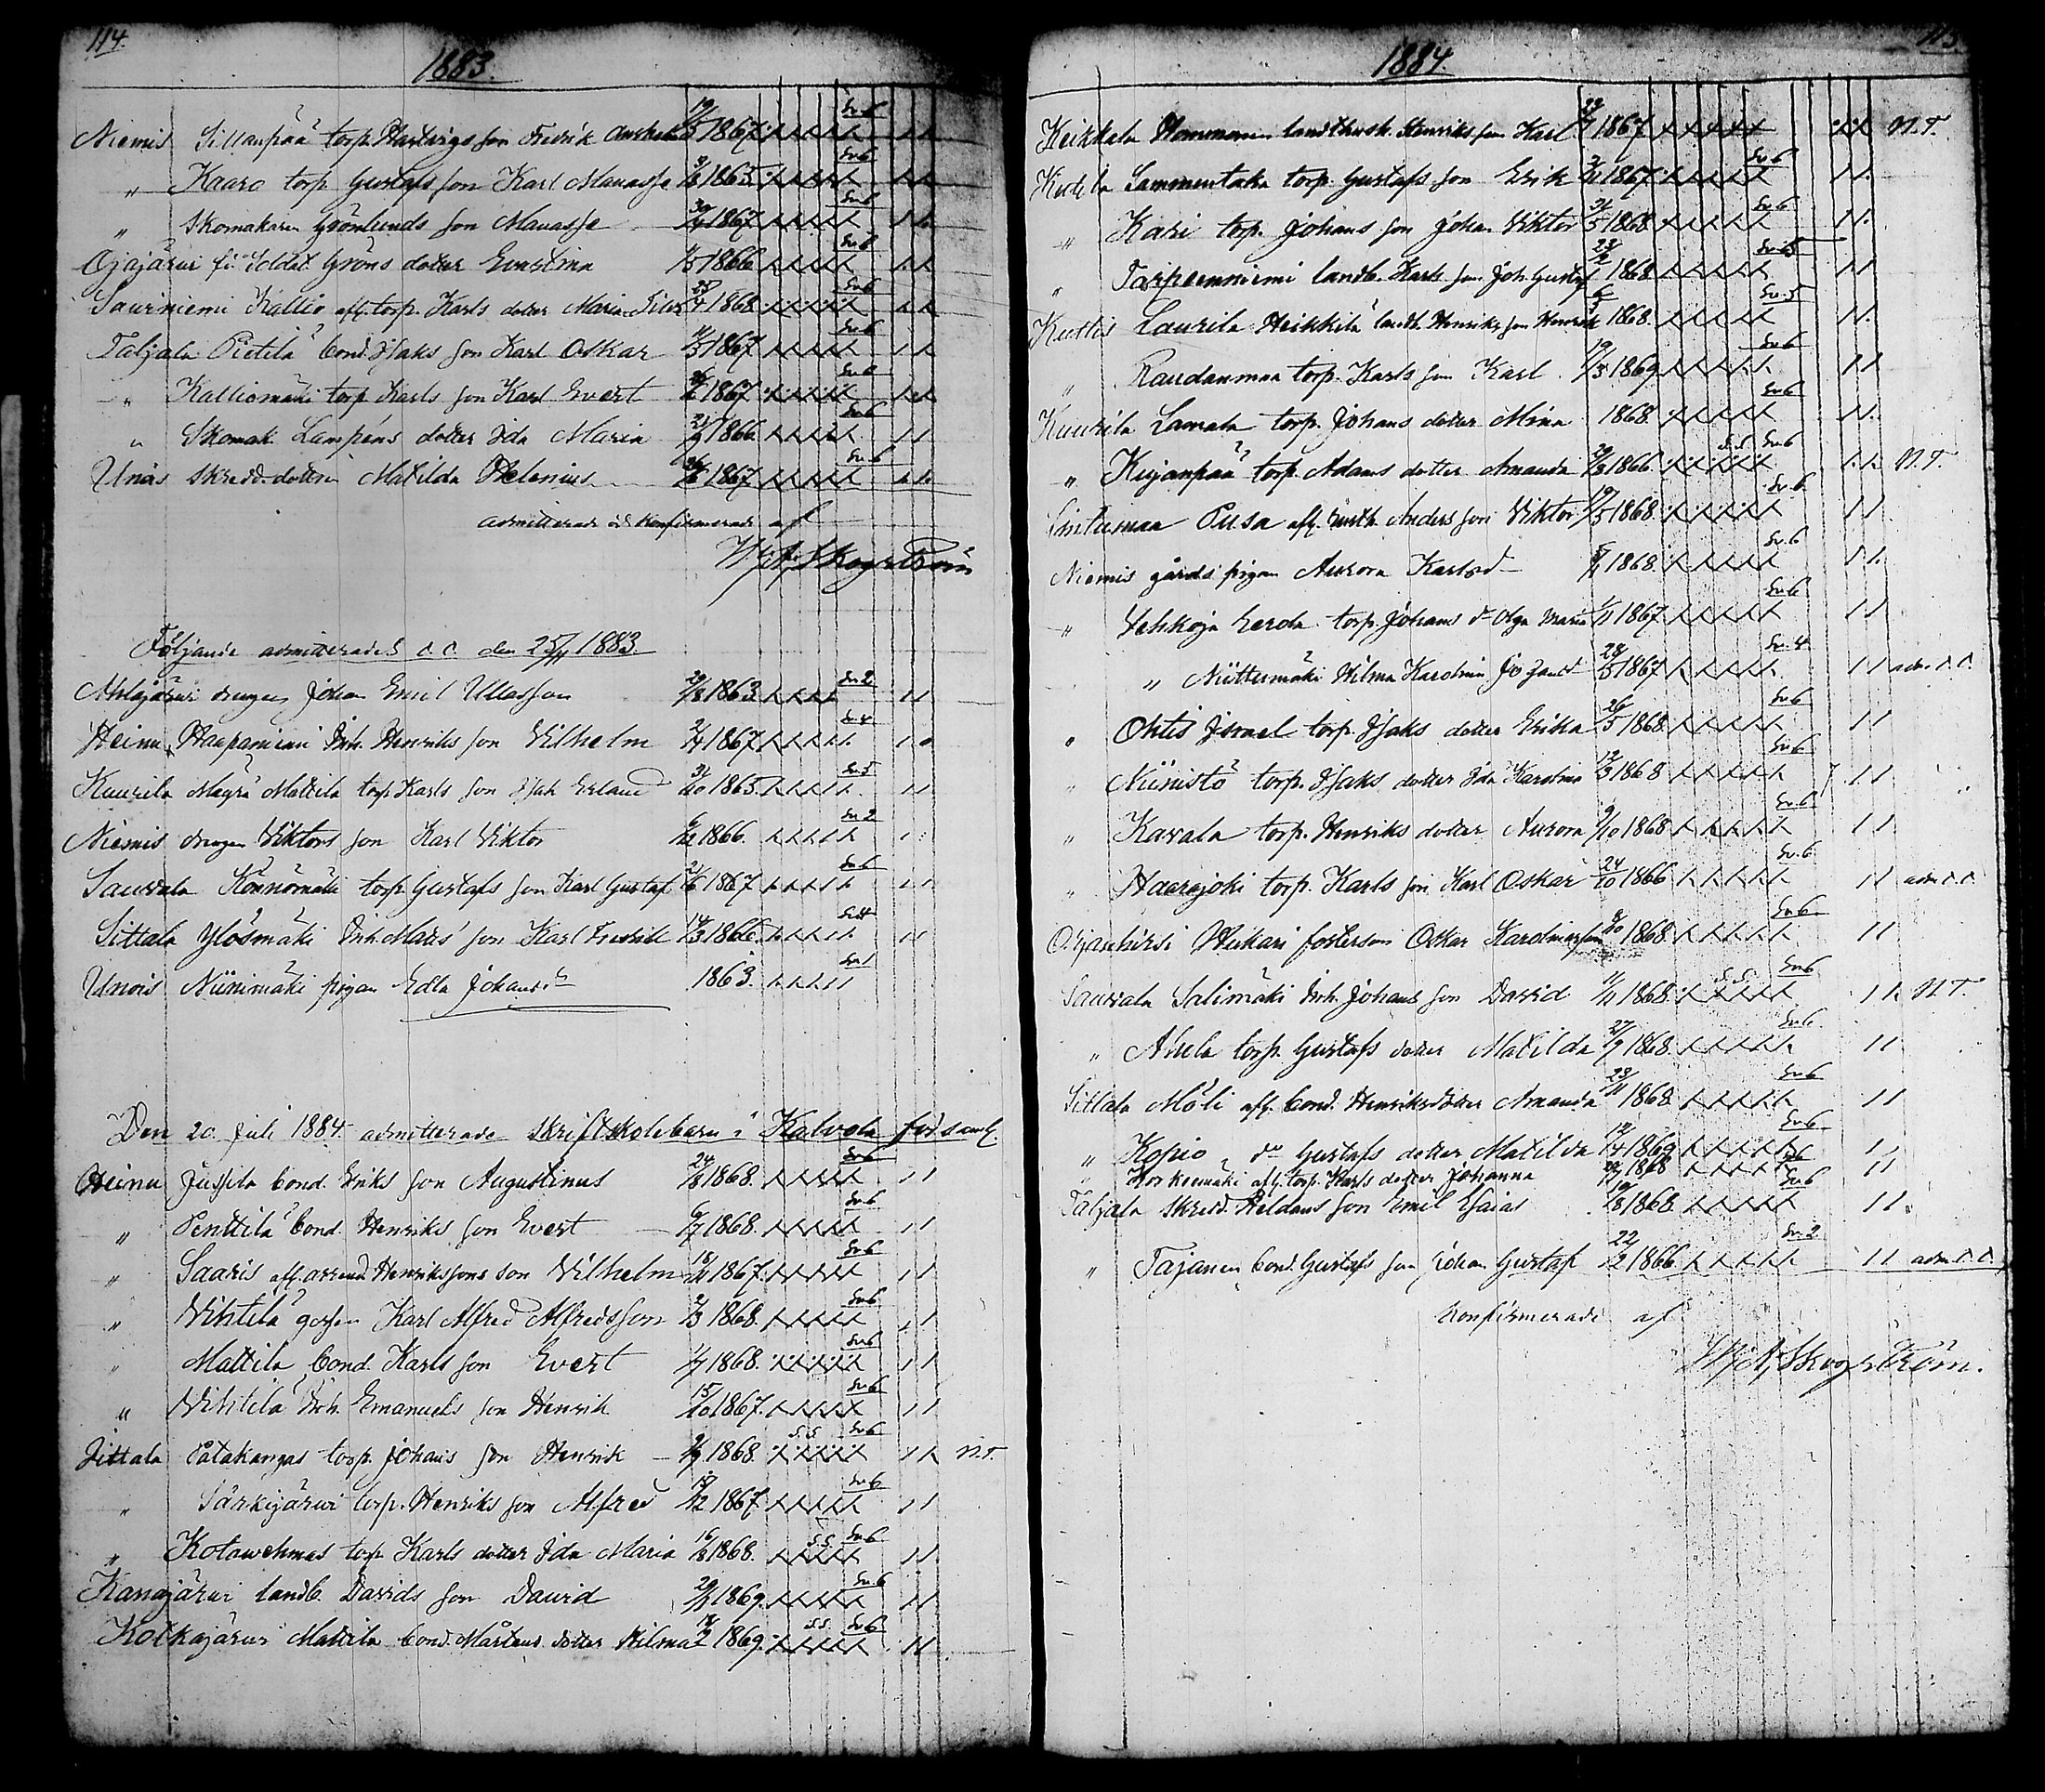 114.
1883.
Niemis Sillanpää torp. Hartvigs son Fredrik 19/5 1867 Sv. 6
" Kaaro torp. Gustafs son Karl Manasse 1865 Sv 6
" Skomakaren Grönlunds son Manasse 1867 Sv 6
Ojajärvi f.d. Soldat Gröns dotter Evastina 1866
Sauriniemi Kallio afl. torp. Karls dotter Maria 1868 Sv 6
Taljala Pietilä bond. Isaks son Karl Oskar 1867 Sv 6
" Kalliomäki torp Karls son Karl Evert 1867
" Skomak. Lampéns dotter Ida Maria 1866 Sv 6
Unais skredd. dottren Matilda Helenius 1867 Sv 6
admitterade och konfirmerade af
W. A. Skogström
Följande admitterades d.d. den 25/11 1883.
Ahlajärvi drengen Johan Emil Ullasson 29/8 1863 Sv. 2
Heinu Haapaniemi Inh. Henriks son Vilhelm 1867 Sv 4
Kuurila Mäyrä Mattila torp Karls son Isak Erland 31/10 1865. Sv 5
Niemis drengen Viktors son Karl Viktor 6/12 1866. Sv 2
Sauvala Könnömäki torp. Gustafs son Karl Gustaf 21/6 1867 Sv 6
Sittala Ylösmäki Inh. Matts' son Karl Fredrik 14/3 1866 Sv 4
Unais Niinimäki pigan Edla Johansd. 1863. Sv 1
Den 20 Juli 1884 admitterade skriftskolebarn i Kalvola församl.
Heinu Jussila bond. Eriks son Augustinus 24/8 1868. Sv 6
" Penttilä bond. Henriks son Evert 6/7 1868. Sv 6
" Saaris afl. arrend. Henrikssons son Vilhelm 18/11 1867. Sv 6
" Nihtilä gossen Karl Alfred Alfredsson 2/3 1868. Sv 6
" Mattila bond. Karls son Evert 1/7 1868. Sv 6
" Nihtilä Inh. Emanuels son Henrik 15/10 1867. Sv 6
Iittala Patakangas torp. Johans son Henrik 9/9 1868. S.S. Sv 6 N.T.
" Särkijärvi torp. Henriks son Alfred 18/12 1867 Sv 6
" Kotavehmas torp Karls dotter Ida Maria 16/8 1868. S.S. Sv 6
Kanajärvi landb. Davids son David 1869. Sv. 6
Kotkajärvi Mattila bond. Mårtens dotter Hilma 1869. S.S. Sv 6
115
1884.
Keikkala Hommanen landtbruk. Henriks son Karl 29/7 1867 N.T.
Kutila Sammontaka torp. Gustafs son Erik 1867 Sv 6
" Kari torp. Johans son Johan Viktor 31/5 1868 Sv 6
" Tarpeenniemi landb. Karls son Joh. Gustaf 1868 Sv 5
Kutlis Laurila Heikkilä landb. Henriks son Henrik 1868. Sv. 5
" Raudanmaa torp. Karls son Karl 19/5 1869 Sv 6
Kuurila Lamala torp. Johans dotter Mina 1868. Sv 6
" Kujanpää torp. Adams dotter Amanda 1866 S.S Sv 6 N.T.
Sintumaa Pusa afl. Anders son Viktor 19/5 1868. Sv. 6
Niemis gårds pigan Aurora Karlsd. 1868. Sv. 6
" Lehkoja Eerola torp. Johans d. Olga Maria 1/11 1867 Sv 6
" Niittumäki Hilma Karolina Johansd. 28/5 1867 Sv. 4 adm. d.d.
" Ohtis Israel torp. Isaks dotter Erika 26/5 1868 Sv 6
" Niinistö torp. Isaks dotter Ida Karolina 12/3 1868 Sv 6
" Kavala torp. Henriks dotter Aurora 9/10 1868 Sv 6
" Haarajoki torp. Karls son Karl Oskar 24/10 1866 Sv. 6 adm. d.d.
Orjanhirsi Wiikari fosterson Oskar Karolinasson 1868 Sv 6
Sauvala Salimäki Inh. Johans son David 11/11 1868. S.S. Sv 6 N.T.
" Ahela torp. Gustafs dotter Matilda 27/9 1868 Sv 6
Sittala Möli afl. bond. Henriksdotter Amanda 23/11 1868 Sv 6
" Kopio " d:o Gustafs dotter Matilda 1869 Sv 6
" Korkeemäki afl. torp. Karls dotter Johanna 1868
Taljala skredd. Heldans son Emil Esaias 19/8 1868 Sv 6
" Tajanen bond. Gustafs son Johan Gustaf 22/12 1866 Sv. 2 adm. d.d.
konfirmerade af
W. A. Skogström.